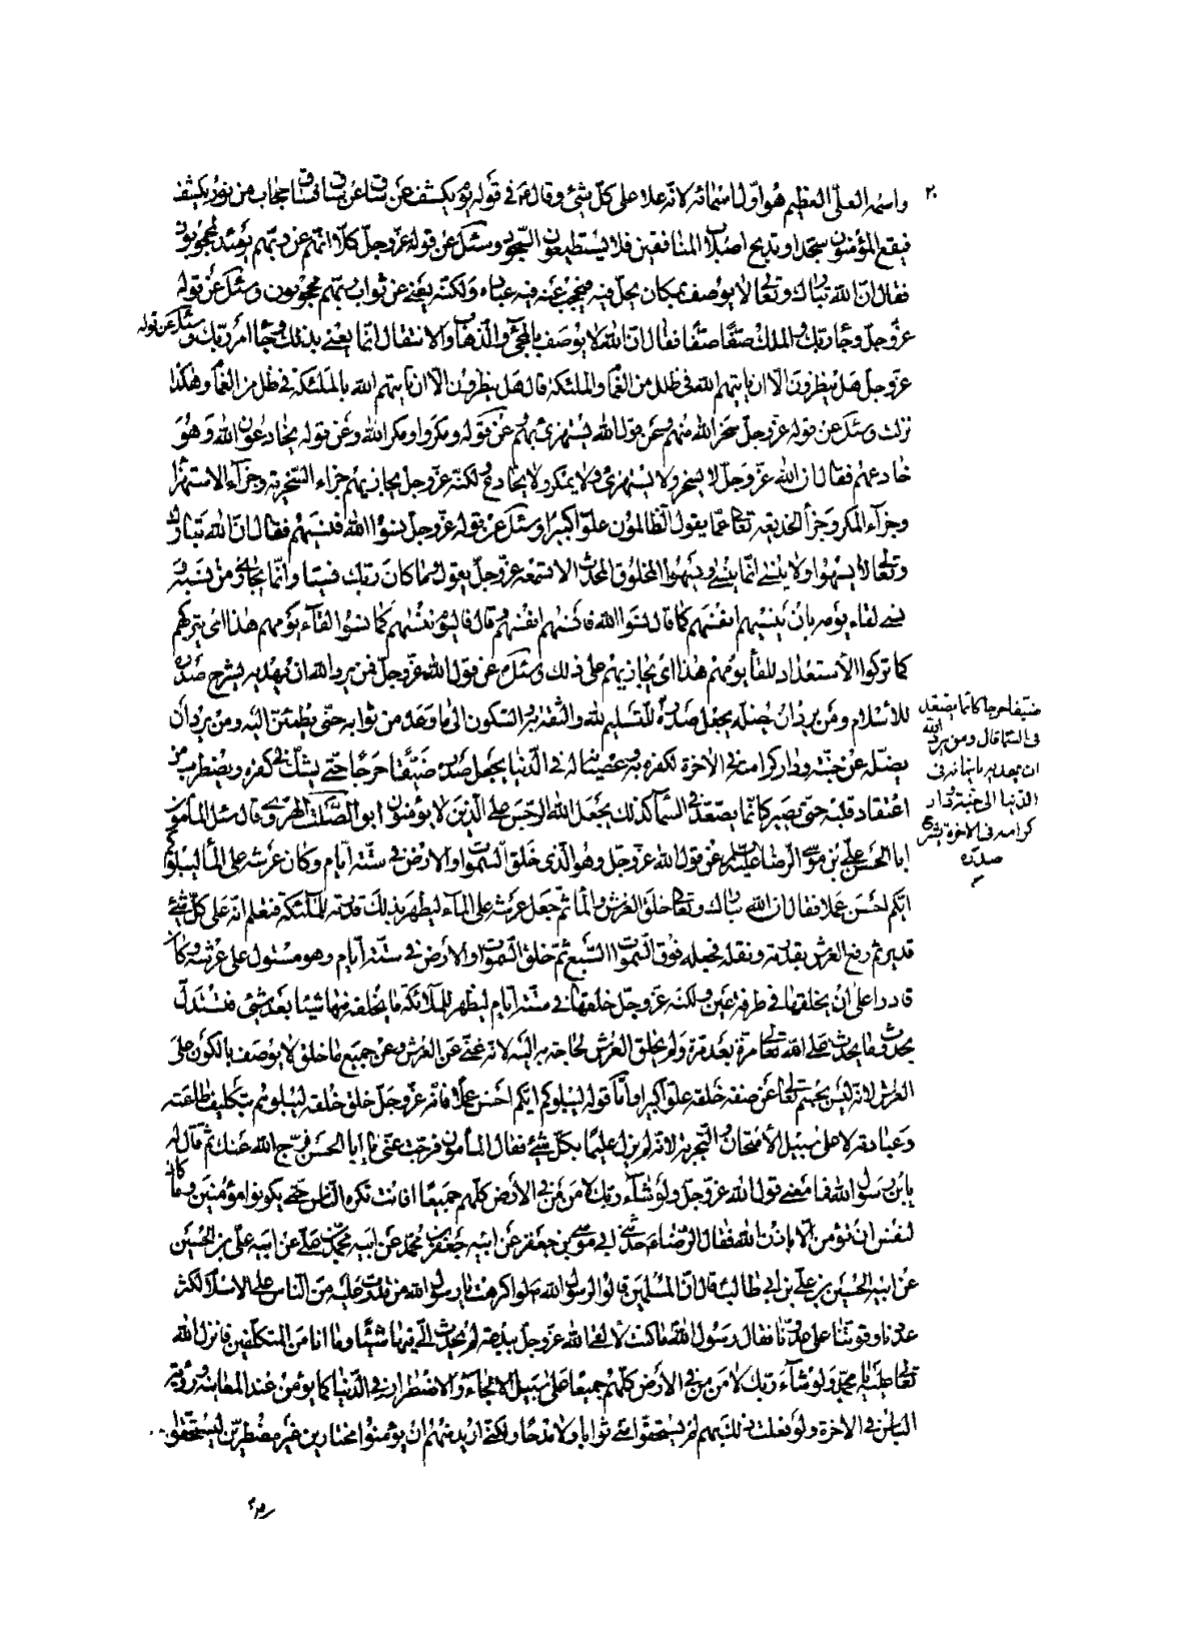 ٢٠
واسمه العلى العظيم هو اول اسمائه لانه علا على كل شئ وقال ع في قوله يوم يكشف عن ساق حجاب من نور يكشف
فيقع المؤمنون سجدا وتدبح اصلاب المنافقين فلا يستطيعون السجود وسئل عن قوله عز وجل كلا انهم عن ربهم يومئذ لمحجوبون
فقال ان الله تبارك وتعالى لا يوصف بمكان يحل فيه فيحجب عنه فيه عباده ولكنه يعنى عن ثواب ربهم محجوبون وسئل عن قوله
عز وجل وجاء ربك والملك صفا صفا فقال ان الله لا يوصف بالمجئ والذهاب والانتقال انما يعنى بذلك وجاء امر ربك وسئل عن قوله
عز وجل هل ينظرون الا ان ياتيهم الله في ظلل من الغمام والملئكة قال هل ينظرون الا ان ياتيهم الله بالملئكة في ظلل من الغمام وهكذا
نزلت وسئل عن قوله عز وجل سخر الله منهم وعن قول الله يستهزئ بهم وعن قوله ومكروا ومكر الله وعن قوله يخادعون الله وهو
خادعهم فقال ان الله عز وجل لا يسخر ولا يستهزئ ولا يمكر ولا يخادع ولكنه عز وجل يجازيهم جزاء السخرية وجزاء الاستهزاء
وجزاء المكر وجزاء الخديعه تعالى عما يقول الظالمون علوا كبيرا وسئل عن قوله عز وجل نسوا الله فنسيهم فقال ان الله تبارك
وتعالى لا يسهوا ولا ينسى انما ينسى ويسهوا المخلوق المحدث الا تسمعه عز وجل يقول وما كان ربك نسيا وانما يجازى من نسيه
نسى لقاء يومه بان ينسيهم انفسهم كما قال نسوا الله فانسيهم انفسهم وقال فاليوم ننسيهم كما نسوا لقاء يومهم هذا اى نتركهم
كما تركوا الاستعداد للقاء يومهم هذا اى نجازيهم على ذلك وسئل عن قول الله عز وجل فمن يرد الله ان يهديه يشرح صدره
للاسلام ومن يرد ان يضله يجعل صدره للتسليم لله والثقة به والسكون الى ما وعده من ثوابه حتى يطمئن اليه ومن يرد ان
ضيقا حرجا كانما يصعد
في السماء قال ومن يرد الله
ان يهديه بايمانه في
الدنيا الى جنته ودار
كرامته في الاخرة يشرح
صدره
يضله عن جنته ودار كرامته في الاخرة لكفره به وعصيانه له في الدنيا يجعل صدره ضيقا حرجا حتى يشك في كفره ويضطرب من
اعتقاد قلبه حتى يصير كانما يصعد في السماء كذلك يجعل الله الرجس على الذين لا يؤمنون ابو الصلت الهروى قال سئل المأمون
ابا الحسن على بن موسى الرضا عليه السلام عن قول الله عز وجل وهو الذى خلق السموات والارض في ستة ايام وكان عرشه على الماء ليبلوكم
ايكم احسن عملا فقال ان الله تبارك وتعالى خلق العرش والماء ثم جعل عرشه على الماء ليظهر بذلك قدرته للملئكة فتعلم انه على كل شئ
قدير ثم رفع العرش بقدرته ونقله فجعله فوق السموات السبع ثم خلق السموات والارض في ستة ايام وهو مستول على عرشه وكان
قادرا على ان يخلقها في طرفة عين ولكنه عز وجل خلقها في ستة ايام ليظهر للملائكة ما يخلقه منها شيئا بعد شئ فتستدل
بحدوث ما يحدث على الله تعالى مرة بعد مرة ولم يخلق العرش لحاجته به اليه لانه غنى عن العرش وعن جميع ما خلق لا يوصف بالكون على
العرش لانه ليس بجسم تعالى عن صفة خلقه علوا كبيرا واما قوله ليبلوكم ايكم احسن عملا فانه عز وجل خلق خلقه ليبلوهم بتكليف طاعته
وعبادته لا على سبيل الامتحان والتجربة لانه لم يزل عليما بكل شئ فقال المأمون فرجت عنى يا ابا الحسن فرج الله عنك ثم قال له
يابن رسول الله فما معنى قول الله عز وجل ولو شاء ربك لامن من في الارض كلهم جميعا افانت تكره الناس حتى يكونوا مؤمنين وما كان
لنفس ان تؤمن الا باذن الله فقال الرضا ع حدثنى ابى موسى بن جعفر عن ابيه جعفر بن محمد عن ابيه محمد بن على عن ابيه على بن الحسين
عن ابيه الحسين بن على بن ابى طالب قال ان المسلمين قالوا لرسول الله ص لو اكرهت يا رسول الله من قدرت عليه من الناس على الاسلام لكثر
عددنا وقوتنا على عدونا فقال رسول الله ما كنت لالقى الله عز وجل ببدعة لم يحدث الى فيها شيئا وما انا من المتكلفين فانزل الله
تعالى عليه يا محمد ولو شاء ربك لامن من في الارض كلهم جميعا على سبيل الالجاء والاضطرار في الدنيا كما يؤمن عند المعاينة ورؤية
الباس في الاخرة ولو فعلت ذلك بهم لم يستحقوا منى ثوابا ولا مدحا ولكنى اريد منهم ان يؤمنوا مختارين غير مضطرين ليستحقوا